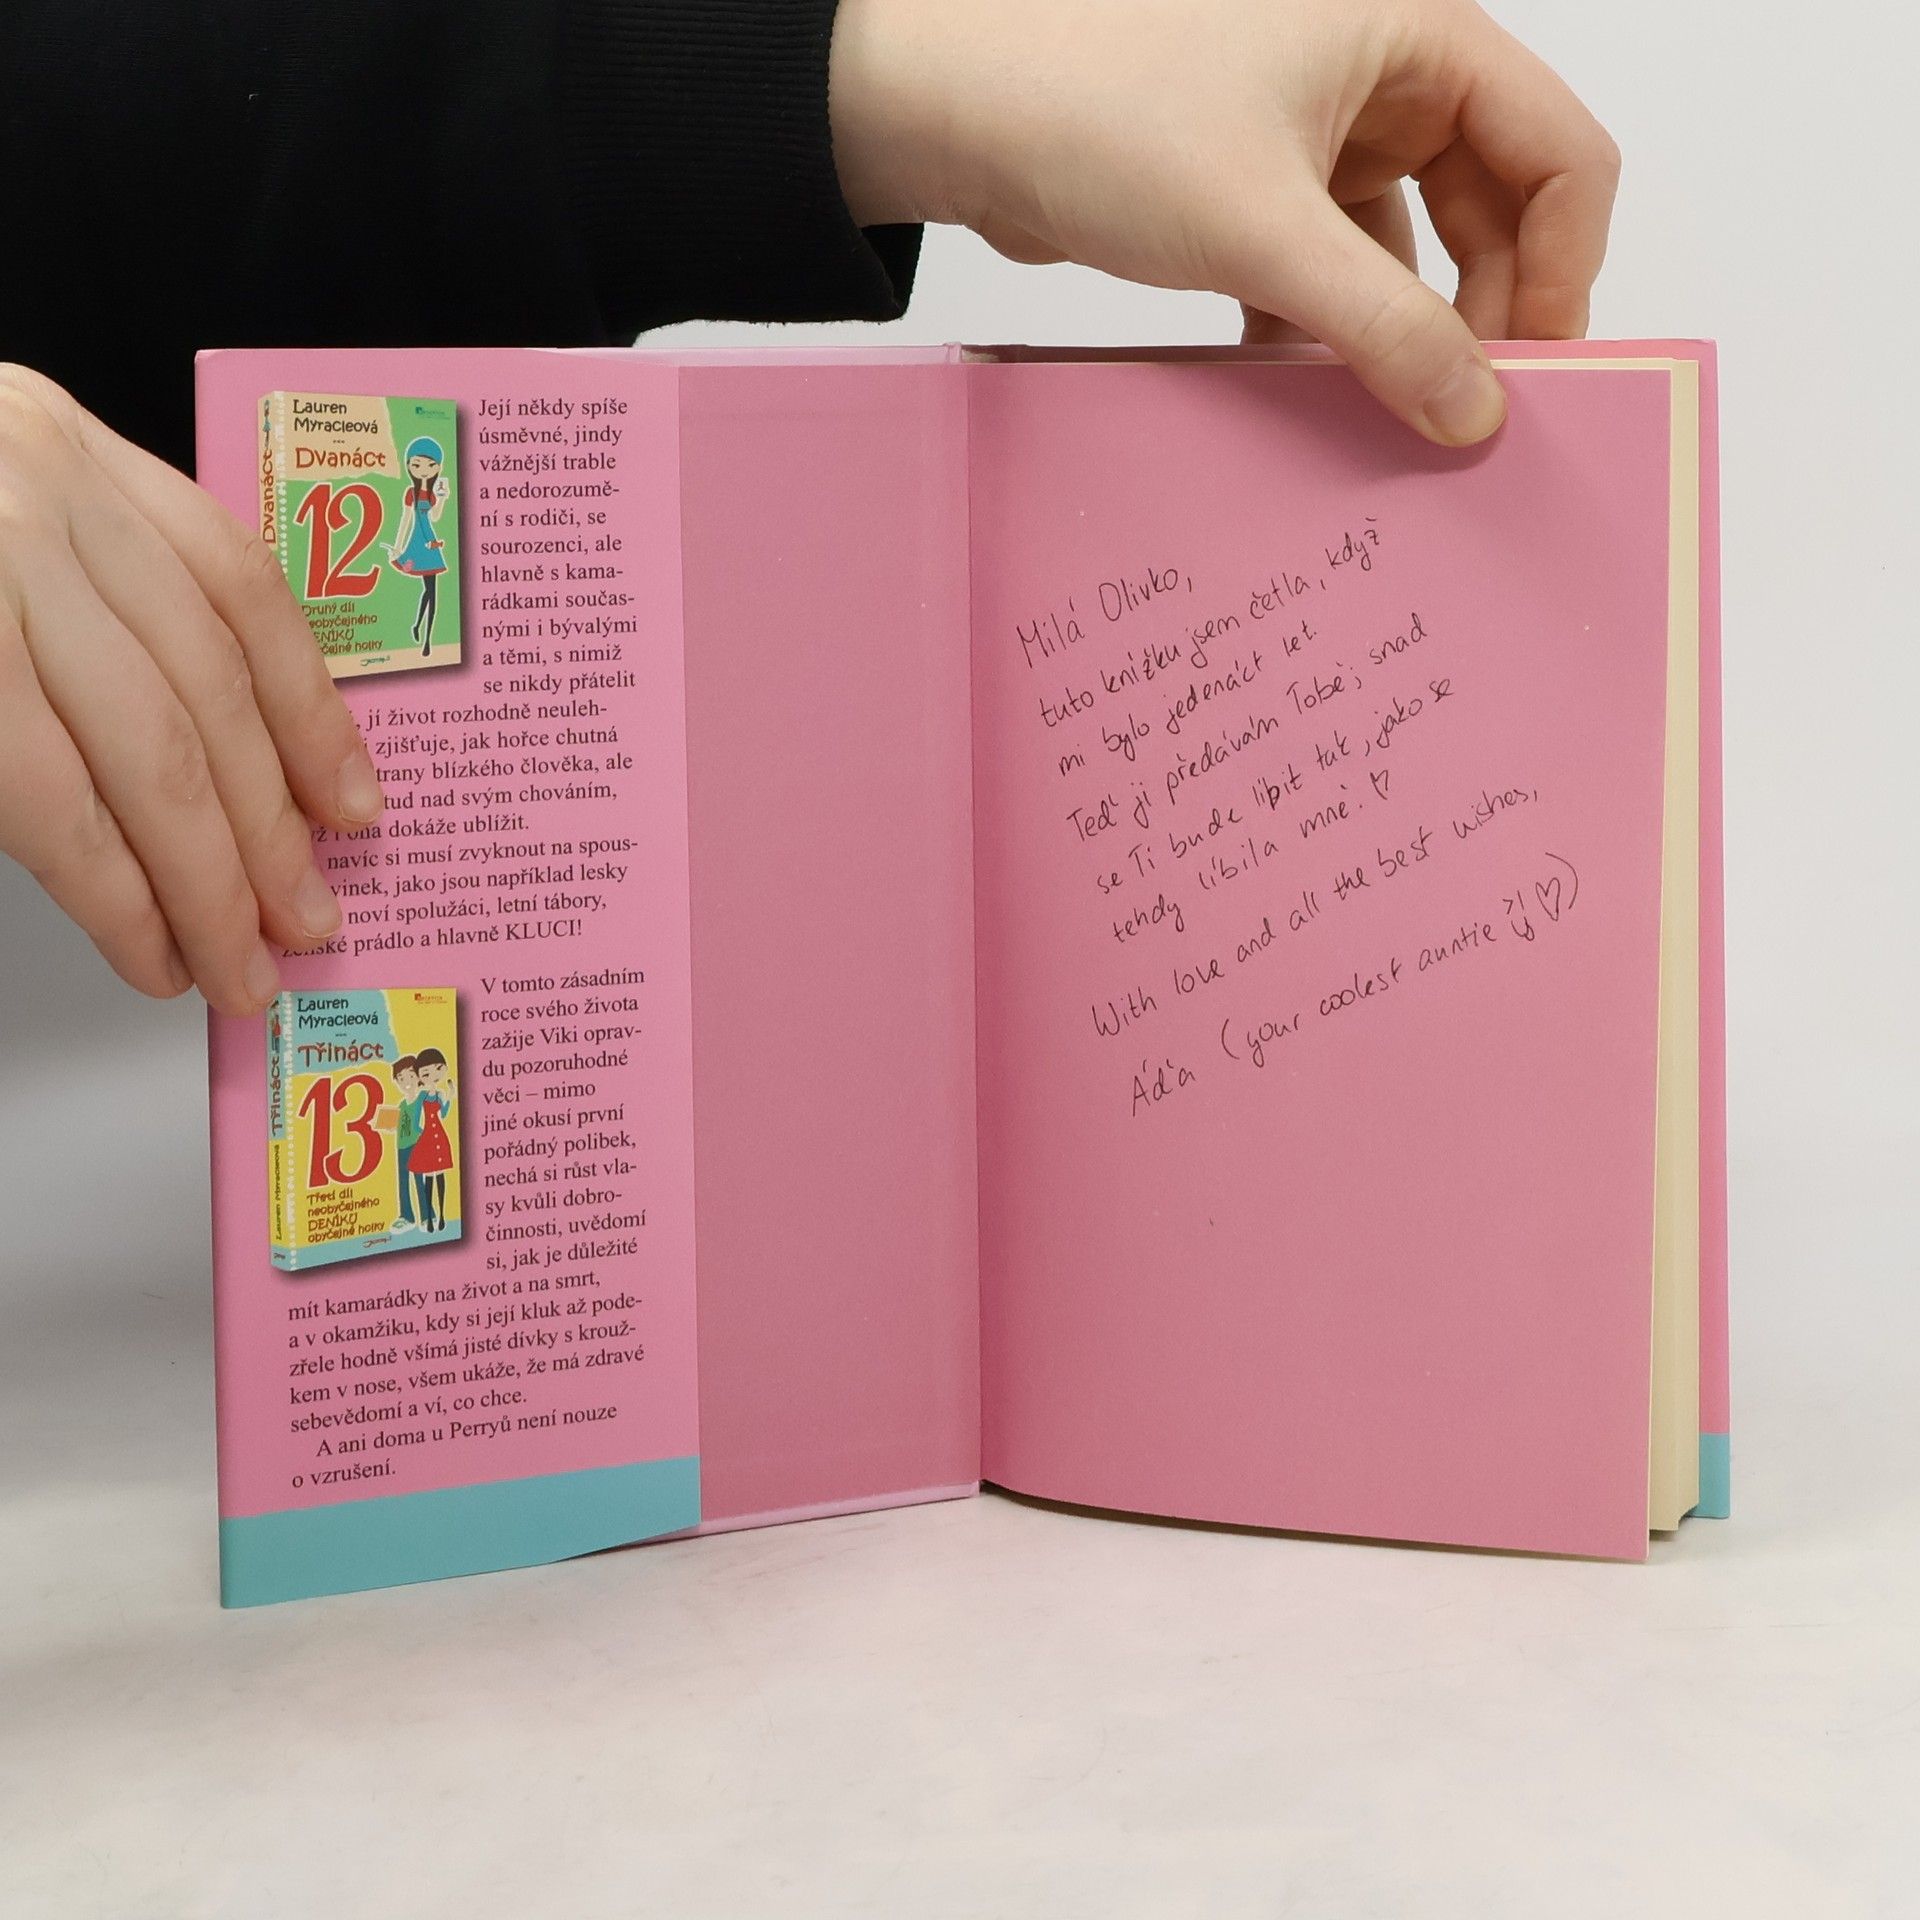 Lauren
Myracleová
Dvanáct
12
Dvanáct
Druhý díl
neobyčejného
DENÍKU
Její někdy spíše
úsměvné, jindy
vážnější trable
a nedorozumě-
ní s rodiči, se
sourozenci, ale
hlavně s kama-
rádkami součas-
nými i bývalými
a těmi, s nimiž
se nikdy přátelit
jí život rozhodně neuleh-
zjišťuje, jak hořce chutná
trany blízkého člověka, ale
tud nad svým chováním,
dokáže ublížit.
navíc si musí zvyknout na spous-
vinek, jako jsou například lesky
noví spolužáci, letní tábory,
prádlo a hlavně KLUCI!
Lauren
Myracleová
Třináct
13
Třetí díl
neobyčejného
DENÍKU
obyčejné holky
Lauren Myracleová Třináct
V tomto zásadním
roce svého života
zažije Viki oprav-
du pozoruhodné
věci – mimo
jiné okusí první
pořádný polibek,
nechá si růst vla-
sy kvůli dobro-
činnosti, uvědomí
si, jak je důležité
mít kamarádky na život a na smrt,
a v okamžiku, kdy si její kluk až pode-
zřele hodně všímá jisté dívky s krouž-
kem v nose, všem ukáže, že má zdravé
sebevědomí a ví, co chce.
A ani doma u Perryů není nouze
o vzrušení.
Milá Olivko,
tuto knížku jsem četla, když
mi bylo jedenáct let.
Teď ji předávám Tobě; snad
se Ti bude líbit tak, jako se
tehdy líbila mně. ♡
With love and all the best wishes,
Áďa (your coolest auntie ♡)